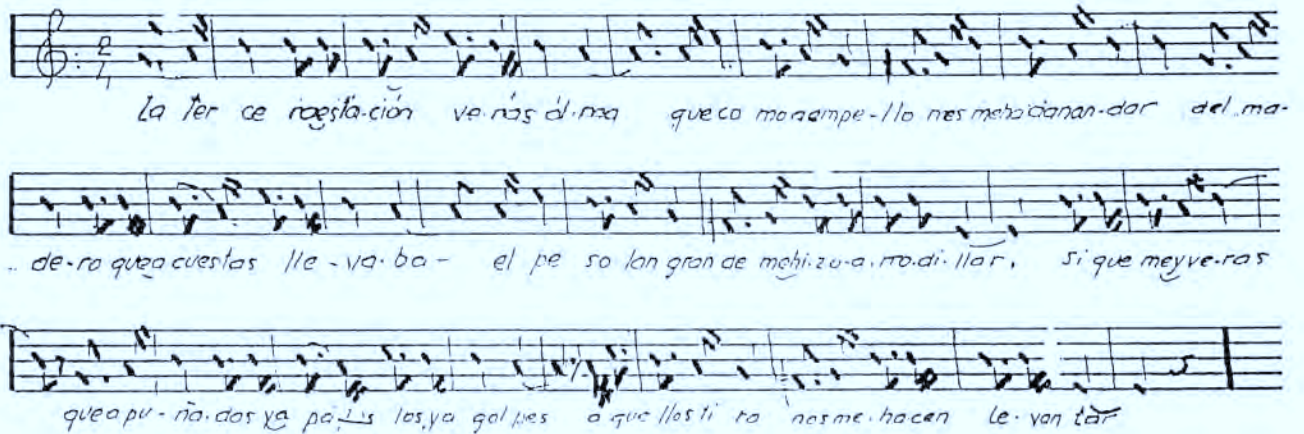 la ter ce raesta-ción ve-rás al-ma que co mo a empe-llo nes me hacian an-dar del ma-
de-ro que a cuestas lle-va-ba- el pe so tan gran de me hi-zo-a-rro-di-llar, si que me y ve-ras
que a pu-ña-dos ya pa-los, ya golpes a que llos ti ra nos me-hacen le-van tar